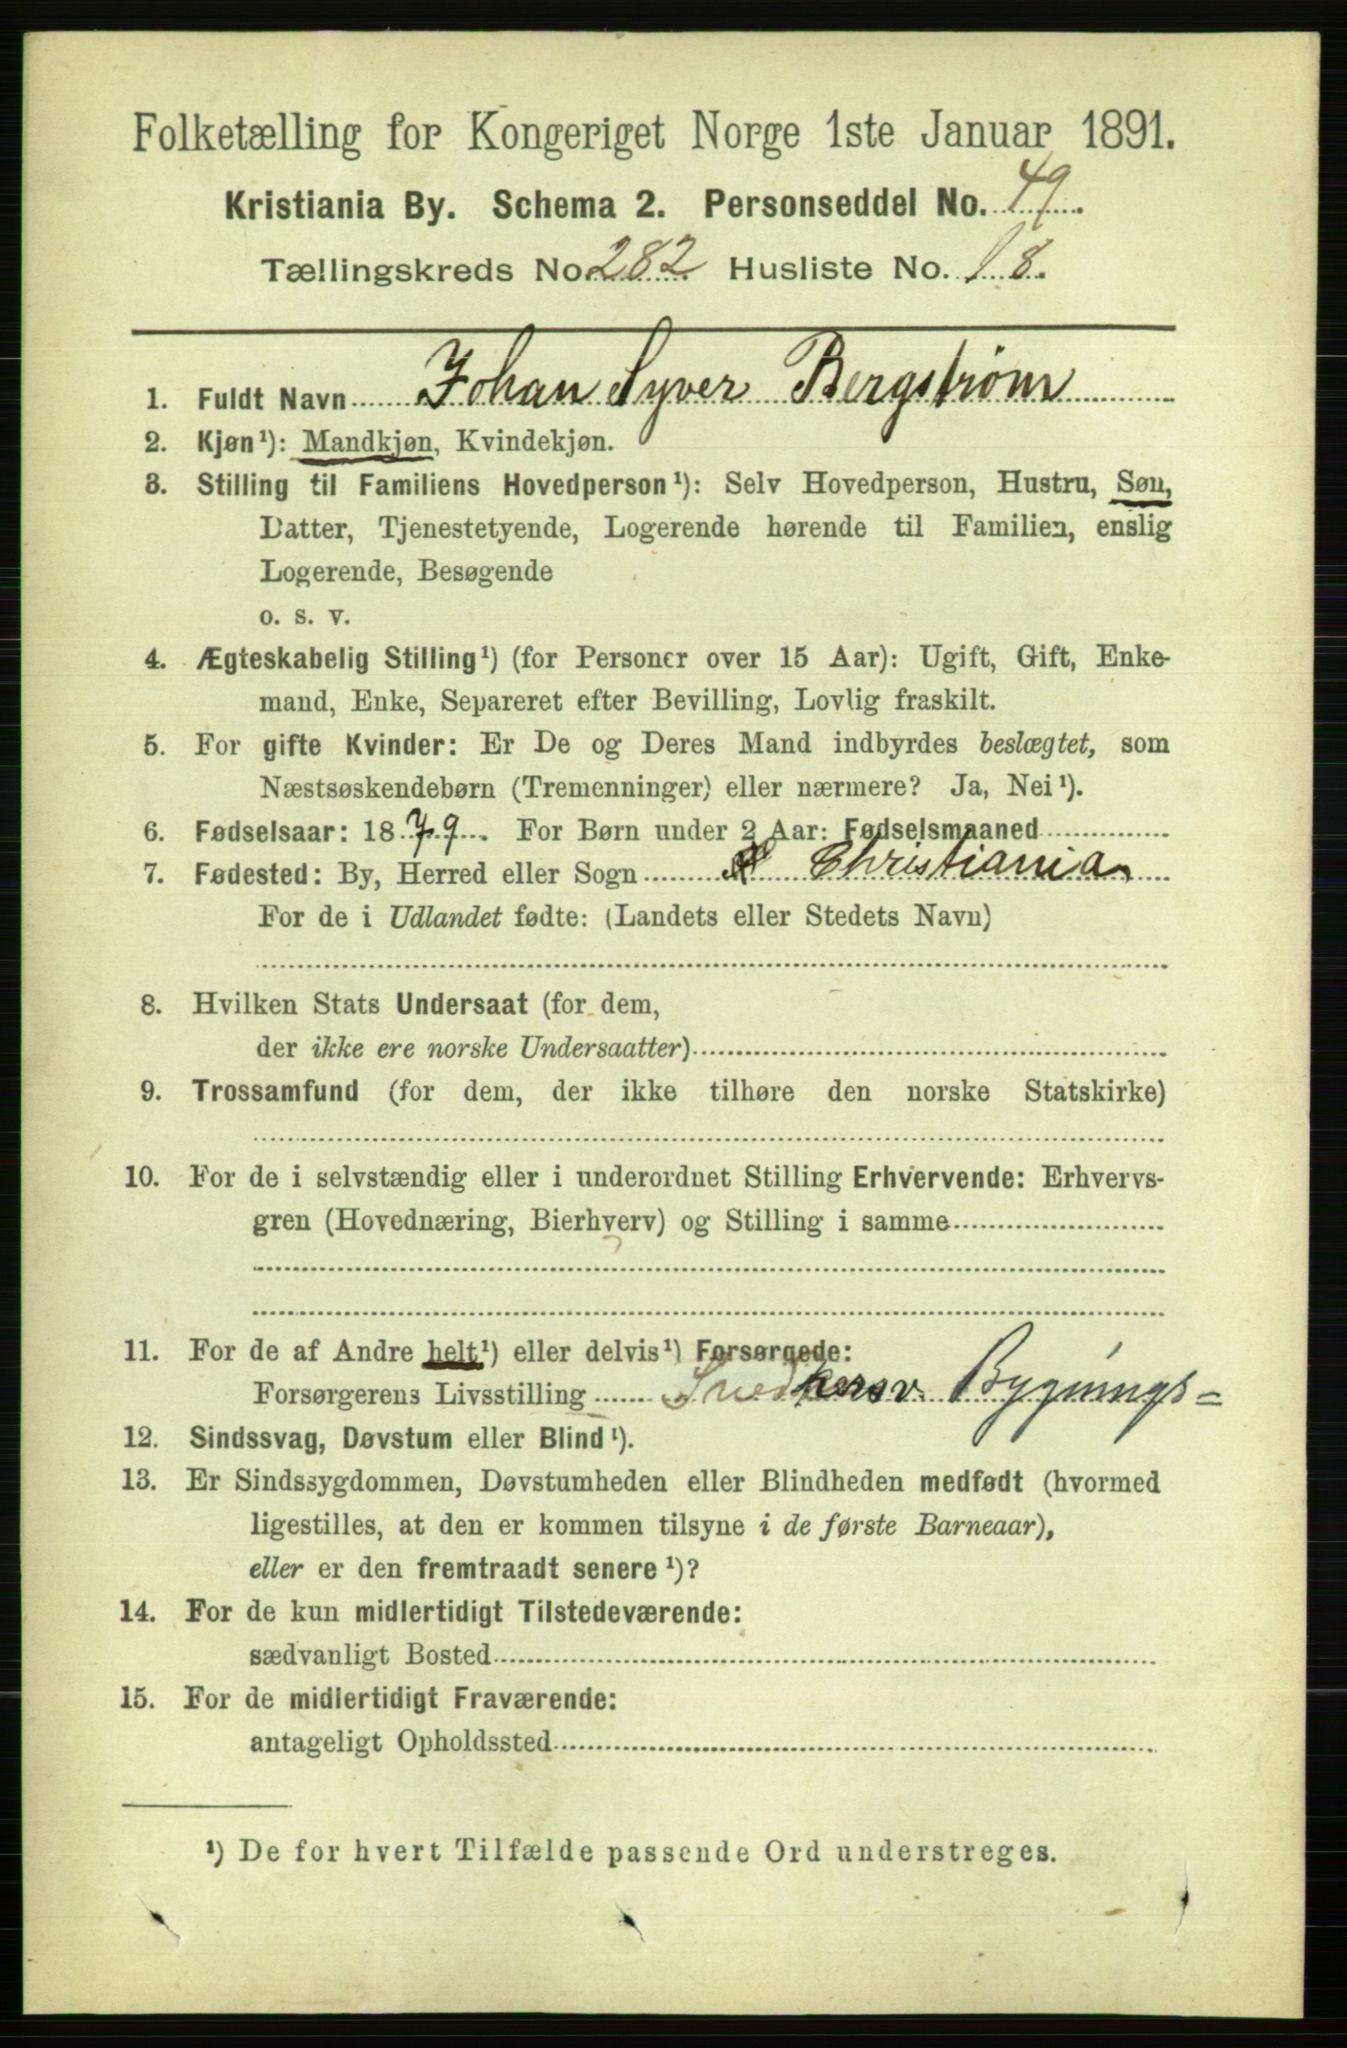 Folketælling for Kongeriget Norge 1ste Januar 1891.
Kristiania By. Schema 2. Personseddel No. 49
Tællingskreds No. 282 Husliste No. 18.
1. Fuldt Navn Johan Syver Bergstrøm
2. Kjøn¹): Mandkjøn, Kvindekjøn.
3. Stilling til Familiens Hovedperson¹): Selv Hovedperson, Hustru, Søn,
Datter, Tjenestetyende, Logerende hørende til Familien, enslig
Logerende, Besøgende
o. s. v.
4. Ægteskabelig Stilling¹) (for Personer over 15 Aar): Ugift, Gift, Enke-
mand, Enke, Separeret efter Bevilling, Lovlig fraskilt.
5. For gifte Kvinder: Er De og Deres Mand indbyrdes beslægtet, som
Næstsøskendebørn (Tremenninger) eller nærmere? Ja, Nei¹).
6. Fødselsaar: 1879. For Børn under 2 Aar: Fødselsmaaned
7. Fødested: By, Herred eller Sogn Christiania
For de i Udlandet fødte: (Landets eller Stedets Navn)
8. Hvilken Stats Undersaat (for dem,
der ikke ere norske Undersaatter)
9. Trossamfund (for dem, der ikke tilhøre den norske Statskirke)
10. For de i selvstændig eller i underordnet Stilling Erhvervende: Erhvervs-
gren (Hovednæring, Bierhverv) og Stilling i samme
11. For de af Andre helt¹) eller delvis¹) Forsørgede:
Forsørgerens Livsstilling Snedkersv. Bygnings=
12. Sindssvag, Døvstum eller Blind¹).
13. Er Sindssygdommen, Døvstumheden eller Blindheden medfødt (hvormed
ligestilles, at den er kommen tilsyne i de første Barneaar),
eller er den fremtraadt senere¹)?
14. For de kun midlertidigt Tilstedeværende:
sædvanligt Bosted
15. For de midlertidigt Fraværende:
antageligt Opholdssted
¹) De for hvert Tilfælde passende Ord understreges.